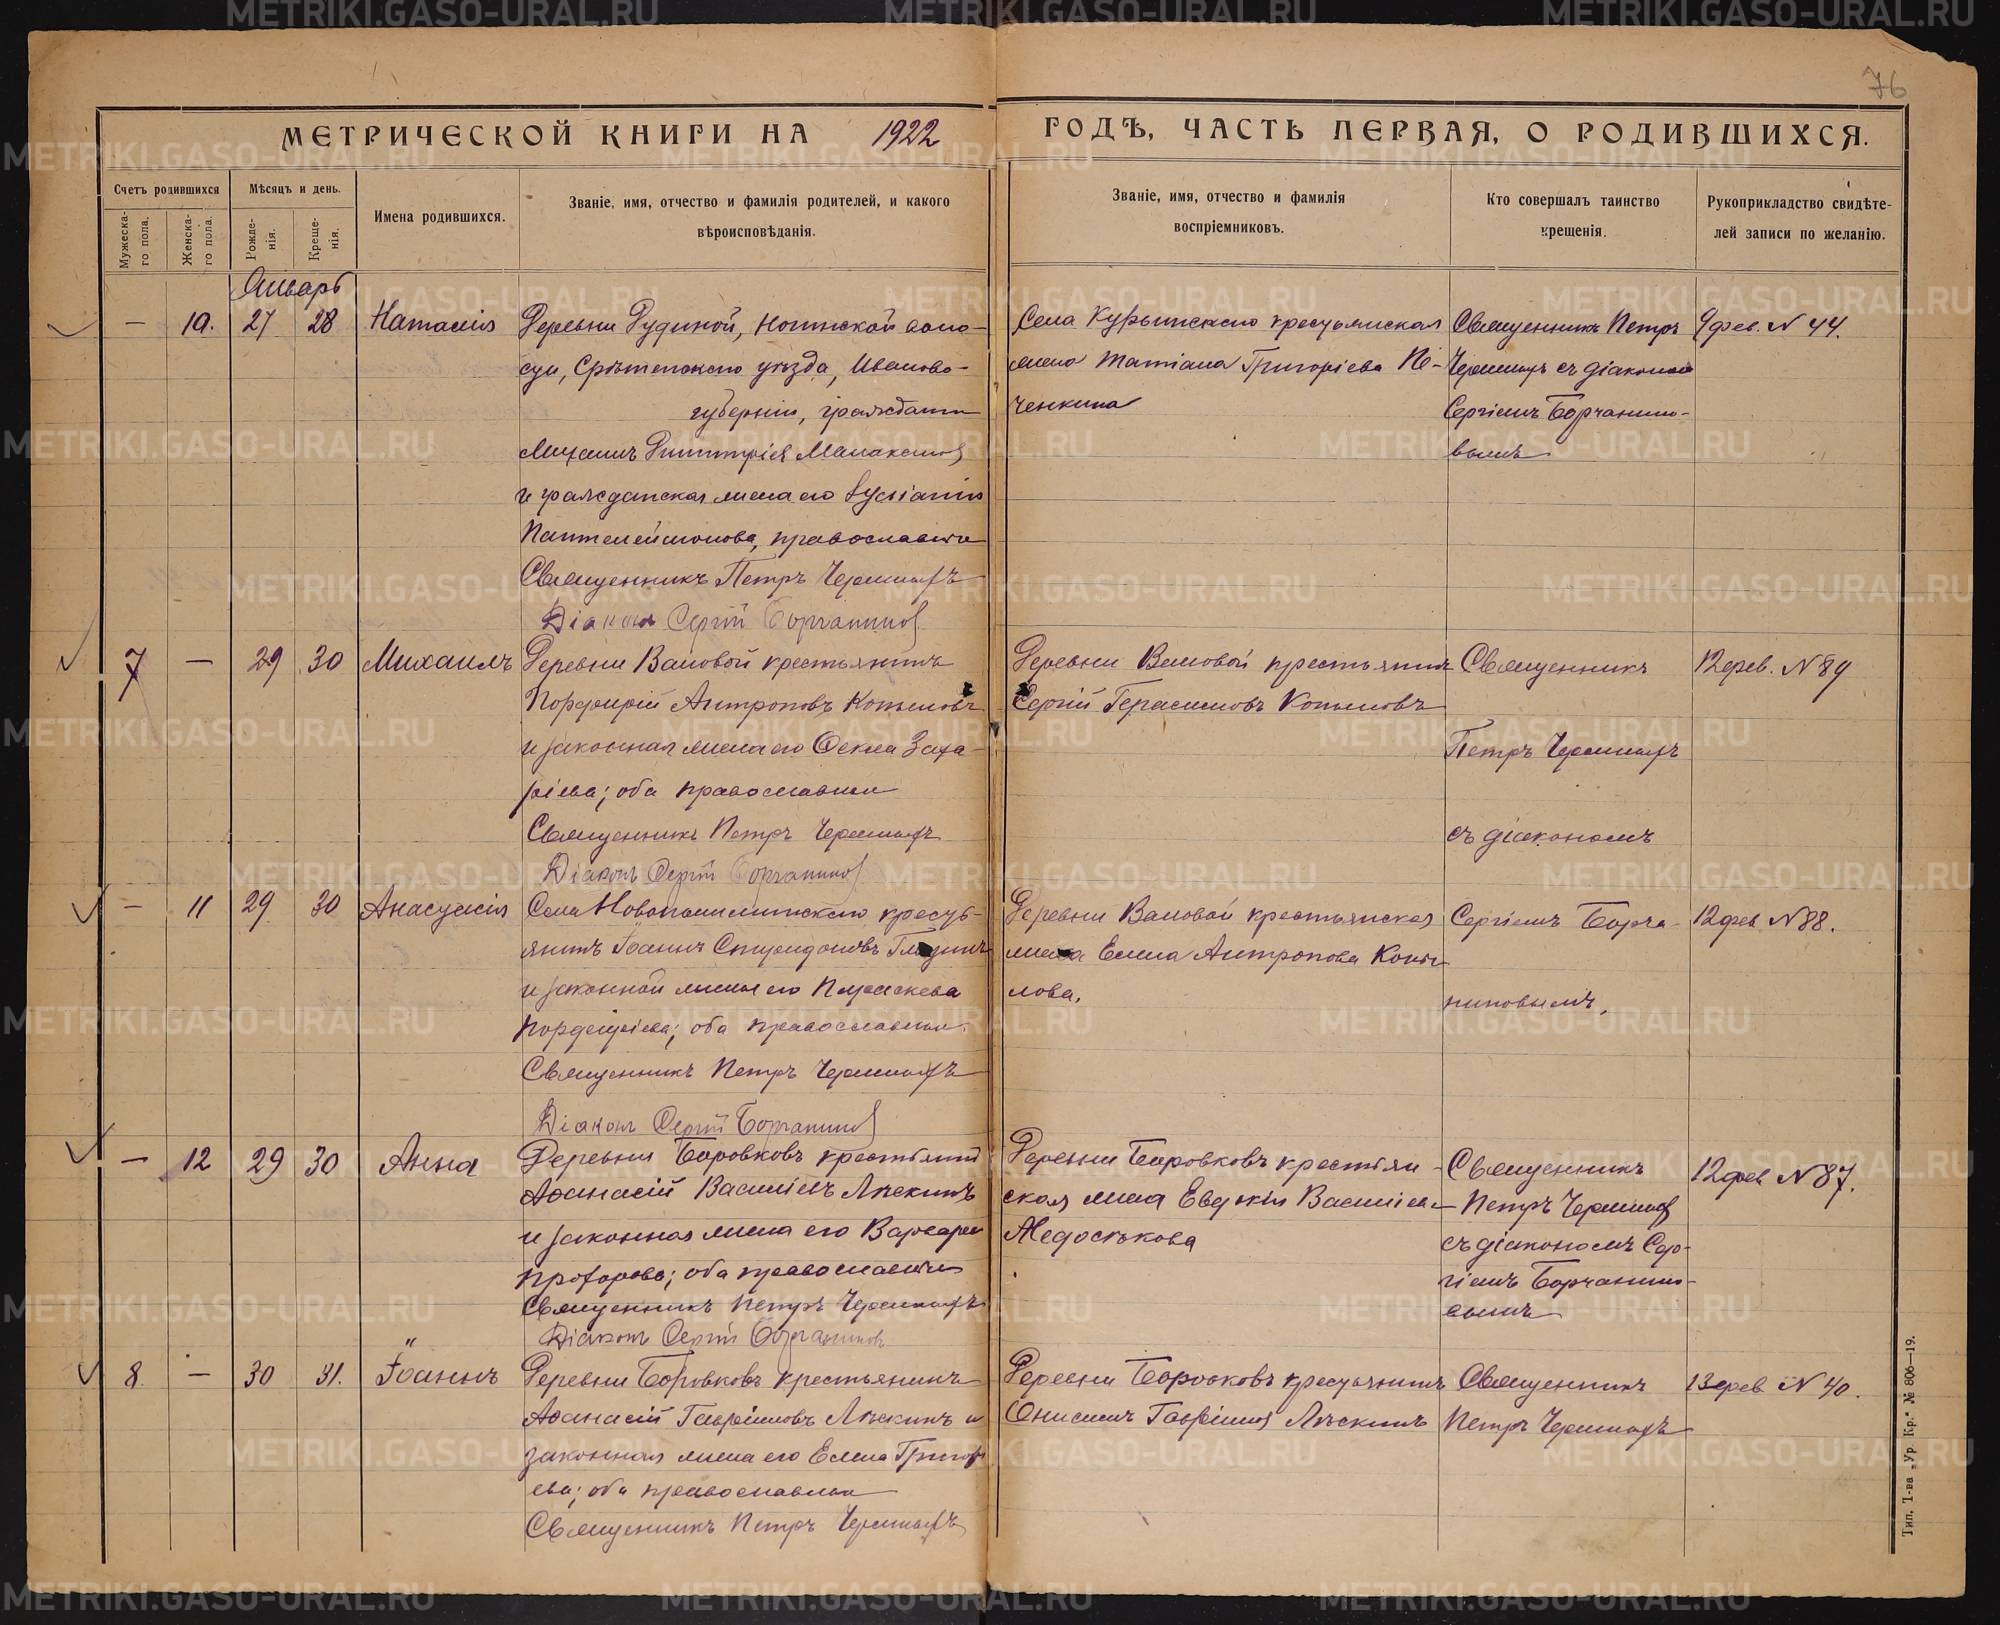 76
МЕТРИЧЕСКОЙ КНИГИ НА 1922 ГОДЪ, ЧАСТЬ ПЕРВАЯ, О РОДИВШИХСЯ.
Счетъ родившихся
Мужеска-го пола.
Женска-го пола.
Мѣсяцъ и день.
Рожде-нія.
Креще-нія.
Имена родившихся.
Званіе, имя, отчество и фамилія родителей, и какого
вѣроисповѣданія.
Званіе, имя, отчество и фамилія
воспріемниковъ.
Кто совершалъ таинство
крещенія.
Рукоприкладство свидѣте-
лей записи по желанію.
Январь
— 10. 27 28 Наталія
Деревни Рудиной, волос-
сти, Срѣтенскаго уѣзда, Иваново-
губерніи, гражданинъ
Михаилъ Димитріев
и гражданская жена его
Пантелеймонова, православные
Священникъ Петръ
Діаконъ Сергій Борчанинов
Села Курьинскаго крестьянская
жена Татіана Григоріева Пе-
ченкина
Священникъ Петръ
съ діакономъ
Сергіемъ Борчанино-
вымъ
9 фев. N 44.
7 — 29 30 Михаилъ
Деревни Валовой крестьянинъ
Порфирій Антроповъ Копыловъ
и законная жена его Ѳекла Заха-
ріева; оба православные
Священникъ Петръ
Діаконъ Сергій Борчанинов
Деревни Валовой крестьянинъ
Сергій Герасимовъ Копыловъ
Священникъ
Петръ
съ діакономъ
12 фев. N 89
— 11 29 30 Анастасія
Села крестьь-
янинъ Іоаннъ Спиридоновъ
и законной жены его Параскева
Порфиріева; оба православные.
Священникъ Петръ
Діаконъ Сергій Борчанинов
Деревни Валовой крестьянская
жена Елена Антропова Копы-
лова.
Сергіемъ Борча-
ниновымъ.
12 фев N 88.
— 12 29 30 Анна
Деревни Боровковъ крестьянин
Аѳанасій Василіевъ Лѣскинъ
и законная жена его Варвара
Прохорова; оба православные
Священникъ Петръ
Діаконъ Сергій Борчанинов
Деревни Боровковъ крестьян-
ская жена Евдокія Василіева
Недосѣкова
Священникъ
Петръ
съ діакономъ Сер-
гіемъ Борчанино-
вымъ
12 фев N 87.
8 — 30 31. Іоаннъ
Деревни Боровковъ крестьянинъ
Аѳанасій Гавріиловъ Лѣскинъ и
законная жена его Елена Григорь
ева; оба православные
Священникъ Петръ
Деревни Боровковъ крестьянинъ
Онисимъ Гавріилов Лѣскинъ
Священникъ
Петръ
13 фев N 40.
Тип. Т-ва „Ур. Кр.“ № 806—19.
METRIKI.GASO-URAL.RU